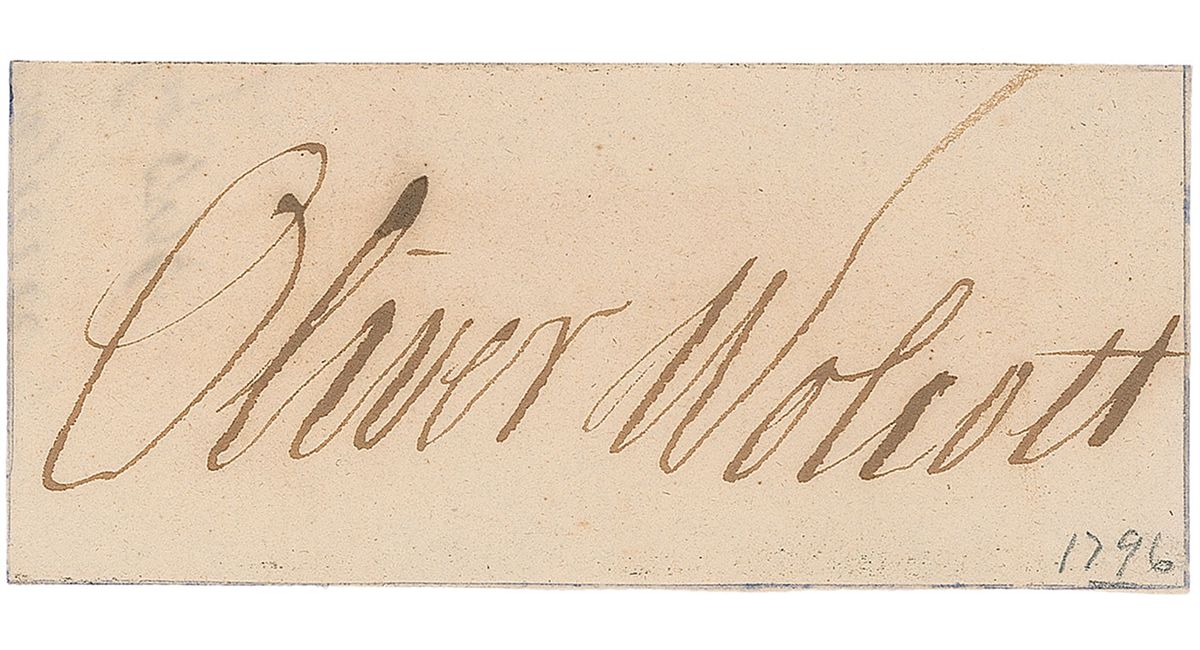 Oliver Wolcott
1796